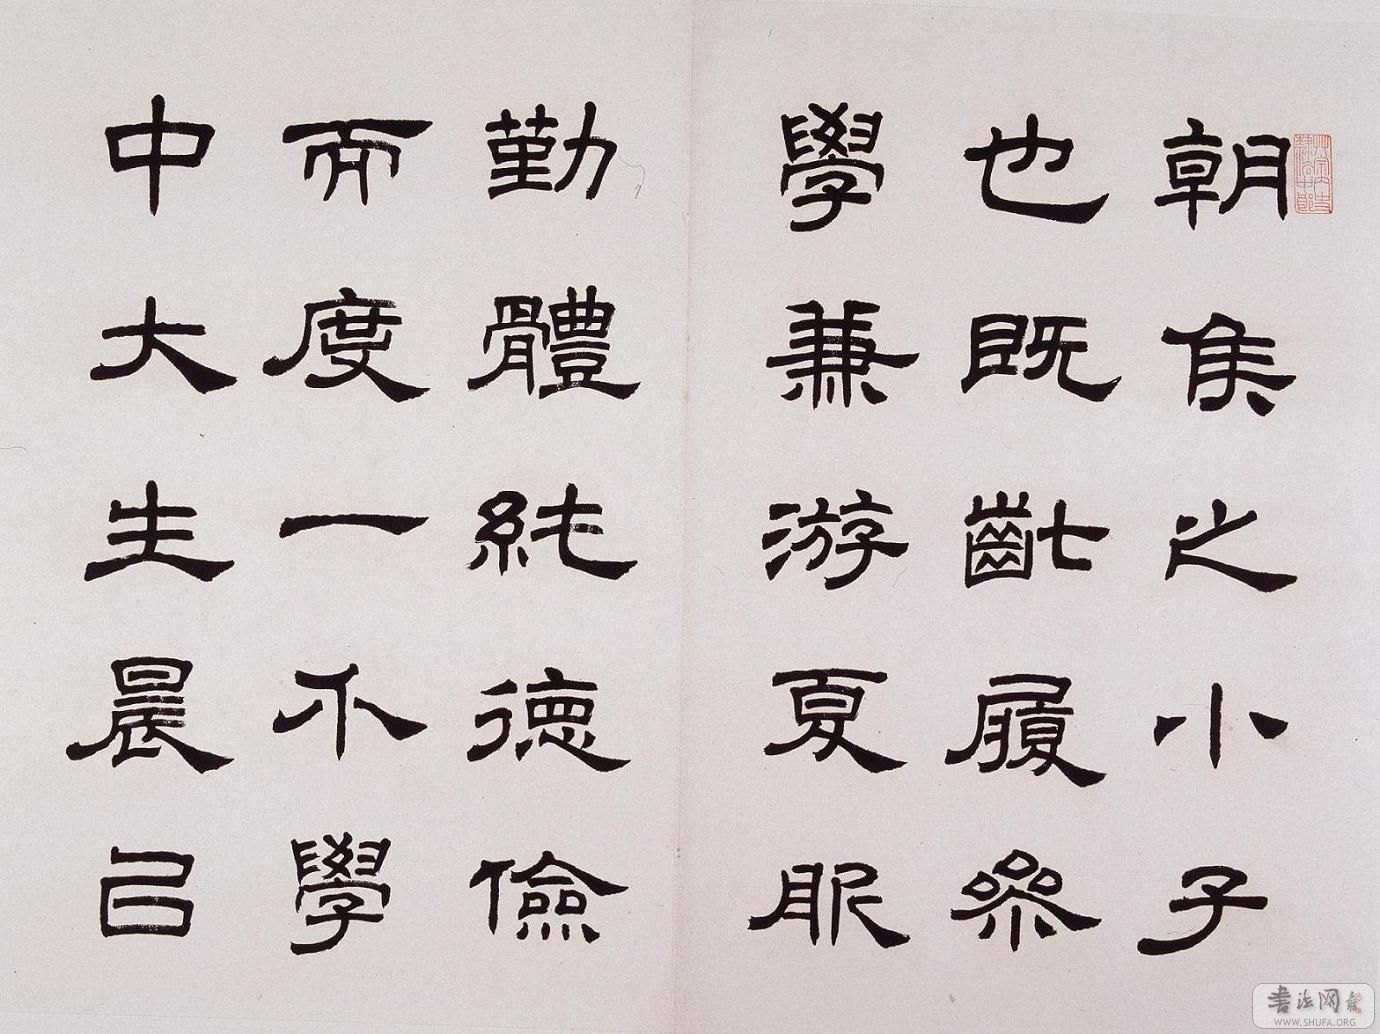 朝侯之小子
也既齔履參
學兼游夏服
勤體純德儉
而度一不學
中大主晨以
书法网
WWW.SHUFA.ORG